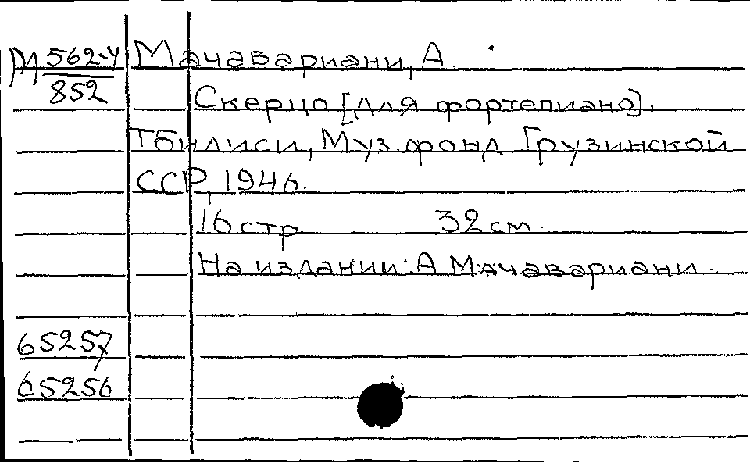 М 562-4/852 Мачавариани, А.
Скерцо [для фортепиано].
Тбилиси, Муз. фонд Грузинской
ССР, 1946.
16 стр 32 см.
На издании: А Мачавариани.
65257
65256